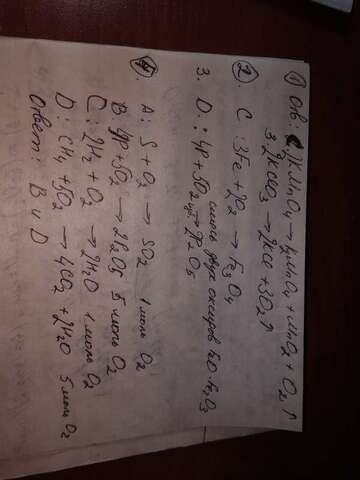 ① Отв: 2KMnO4 → K2MnO4 + MnO2 + O2 ↑
3. 2KClO3 → 2KCl + 3O2 ↑
② C: 3Fe + 2O2 → Fe3O4
смесь двух оксидов FeO·Fe2O3
3. D: 4P + 5O2 → 2P2O5
④ A: S + O2 → SO2 1 моль O2
B: 4P + 5O2 → 2P2O5 5 моль O2
C: 2H2 + O2 → 2H2O 1 моль O2
D: CH4 + 5O2 → 4CO2 + 2H2O 5 моль O2
Ответ: B и D